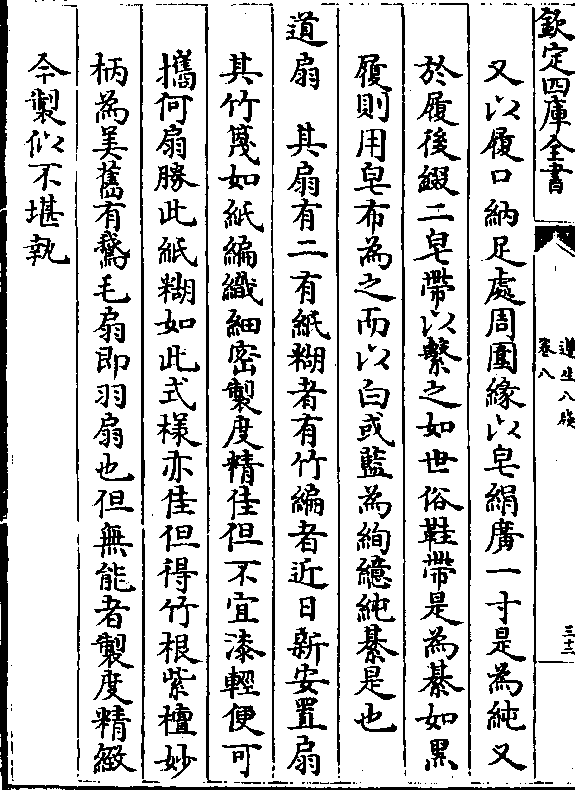 欽定四庫全書
遵生八牋
卷八
三十二
又以履口納足處周圍緣以皂絹廣一寸是為純又
於履後綴二皂帶以繫之如世俗鞋帶是為綦如黑
履則用皂布為之而以白或藍為絇繶純綦是也
道扇　其扇有二有紙糊者有竹編者近日新安置扇
其竹篾如紙編織細密製度精佳但不宜漆輕便可
攜何扇勝此紙糊如此式樣亦佳但得竹根紫檀妙
柄為美舊有鵞毛扇即羽扇也但無能者製度精緻
今製似不堪執